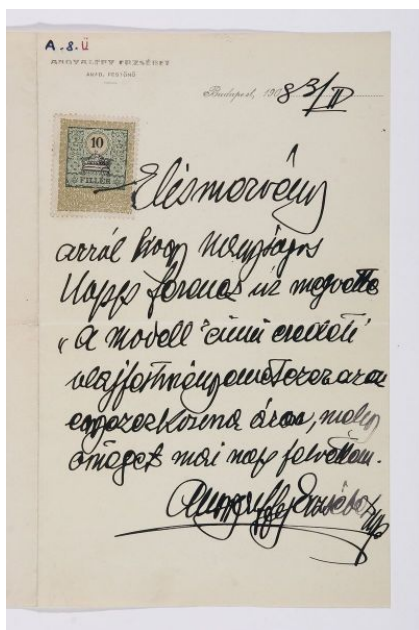 A.8.Ü
ANGYALFFY ERZSÉBET
AKAD. FESTŐNŐ
Budapest, 1908 3/IV
10
FILLÉR
Elismervény
arról hogy Nagyságos
Hopp Ferenc úr megvette
„A modell" című eredeti
olajfestményemet
áráért, mely
összeget mai nap felvettem.
Angyalffy Erzsébet